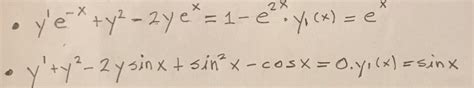 • y'e^{-x} + y² - 2ye^x = 1 - e^{2x}. y₁(x) = e^x
• y' + y² - 2y sin x + sin² x - cos x = 0. y₁(x) = sin x